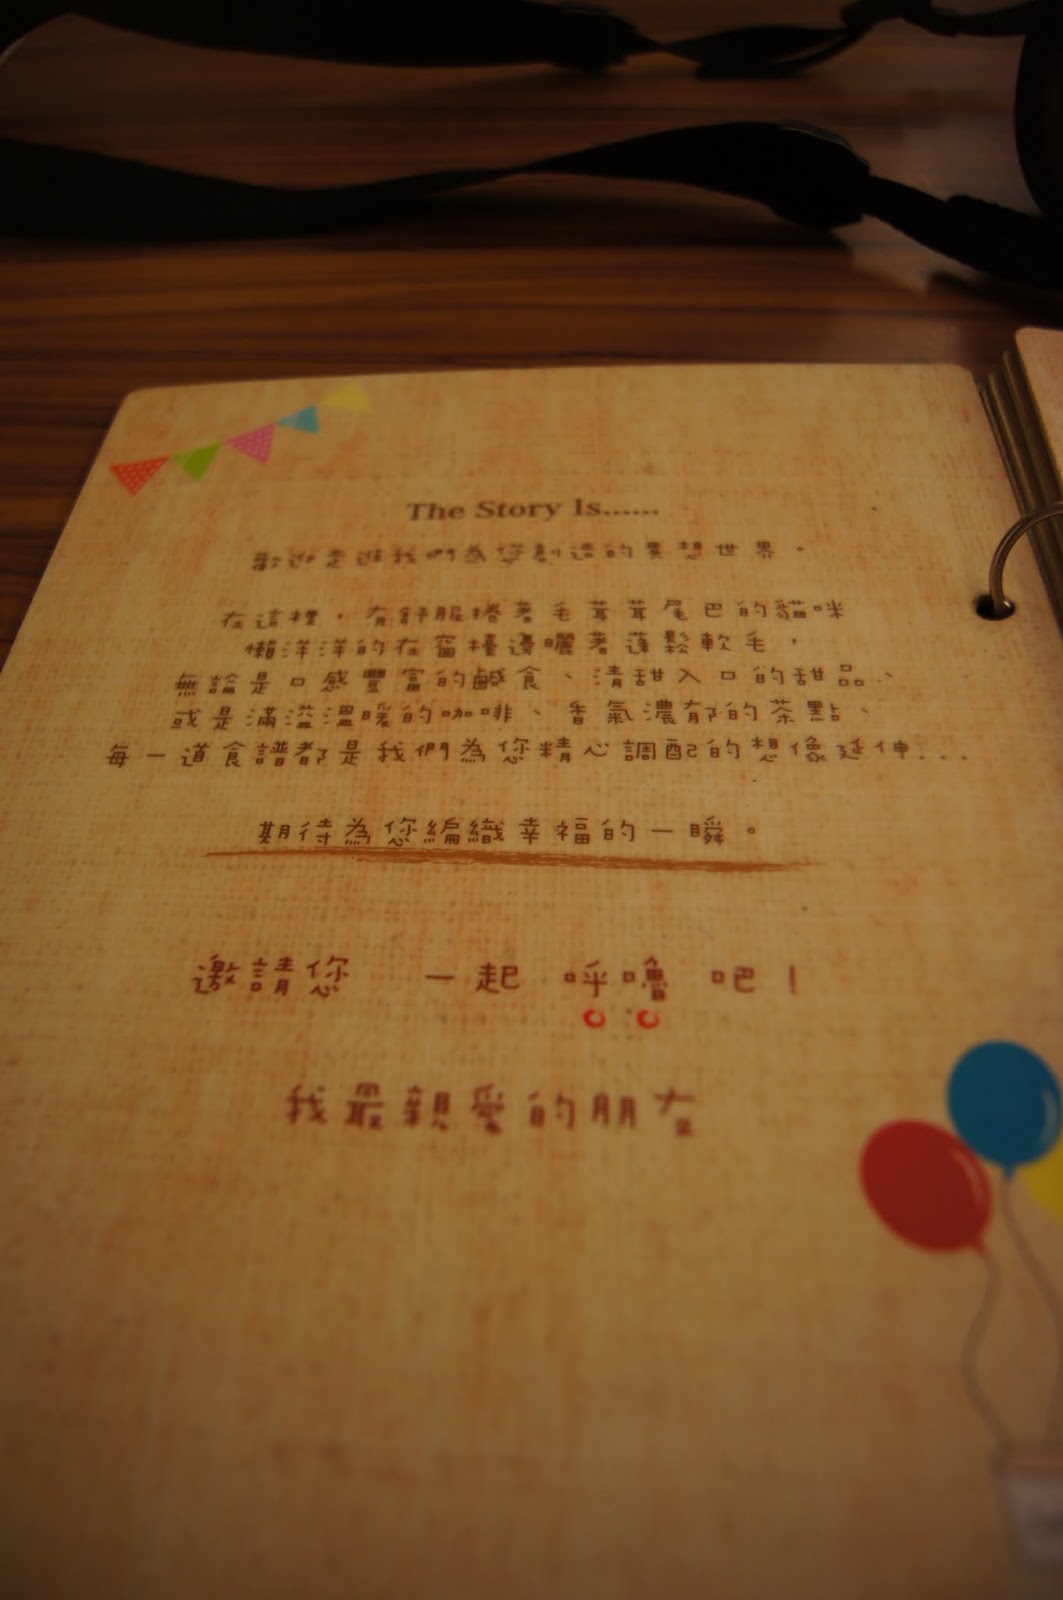 The Story Is......
歡迎走進我們為您創造的異想世界。
在這裡，有舒服捲著毛茸茸尾巴的貓咪
懶洋洋的在窗檯邊曬著蓬鬆軟毛，
無論是口感豐富的鹹食、清甜入口的甜品、
或是滿溢溫暖的咖啡、香氣濃郁的茶點、
每一道食譜都是我們為您精心調配的想像延伸...
期待為您編織幸福的一瞬。
邀請您 一起 呼嚕 吧！
我最親愛的朋友